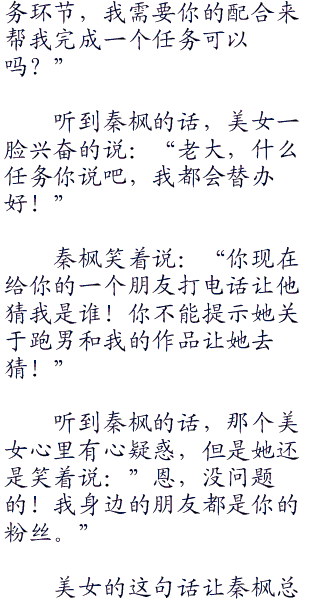 务环节，我需要你的配合来
帮我完成一个任务可以
吗？”
听到秦枫的话，美女一
脸兴奋的说：“老大，什么
任务你说吧，我都会替办
好！”
秦枫笑着说：“你现在
给你的一个朋友打电话让他
猜我是谁！你不能提示她关
于跑男和我的作品让她去
猜！”
听到秦枫的话，那个美
女心里有心疑惑，但是她还
是笑着说：”恩，没问题
的！我身边的朋友都是你的
粉丝。”
美女的这句话让秦枫总